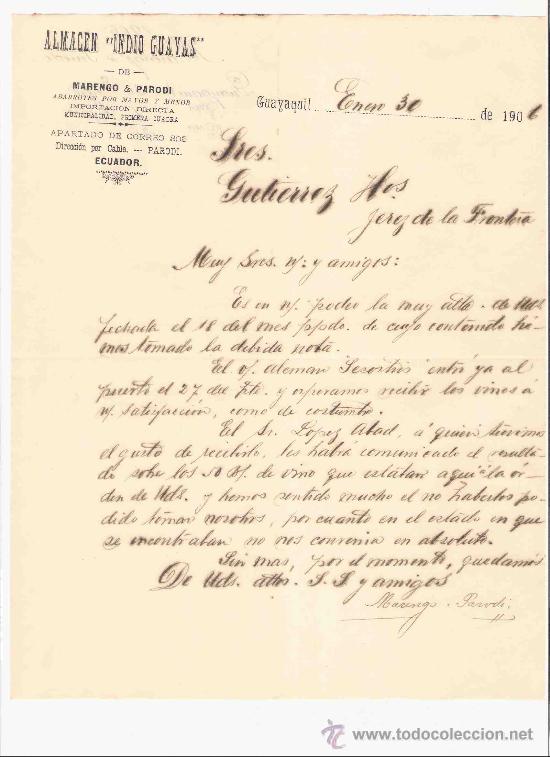 ALMACEN "INDIO GUAYAS"
— DE —
MARENGO & PARODI
ABARROTES POR MAYOR Y MENOR
IMPORTACION DIRECTA
MUNICIPALIDAD, PRIMERA CUADRA
APARTADO DE CORREO 308
Dirección por Cable. — PARODI.
ECUADOR.
Guayaquil Enero 30 de 1906
Sres.
Gutierrez Hos
Jerez de la Frontera
Muy Sres. n/: y amigos:
Es en n/. poder la muy atta. de Uds
fechada el 18 del mes ppdo. de cuyo contenido he-
mos tomado la debida nota.
El v/. aleman Sesostris entró ya al
puerto el 27 del pte. y esperamos recibir los vinos á
n/. satisfacción, como de costumbre.
El Sr. López Abad, á quien tuvimos
el gusto de recibirlo, les habrá comunicado el resulta-
do sobre los 50 B/. de vino que estaban aqui á la ór-
den de Uds. y hemos sentido mucho el no haberlos po-
dido tomar nosotros, por cuanto en el estado en que
se encontraban no nos convenia en absoluto.
Sin mas, por el momento, quedamos
De Uds. attos. S. S. y amigos
Marengo - Parodi.
www.todocoleccion.net